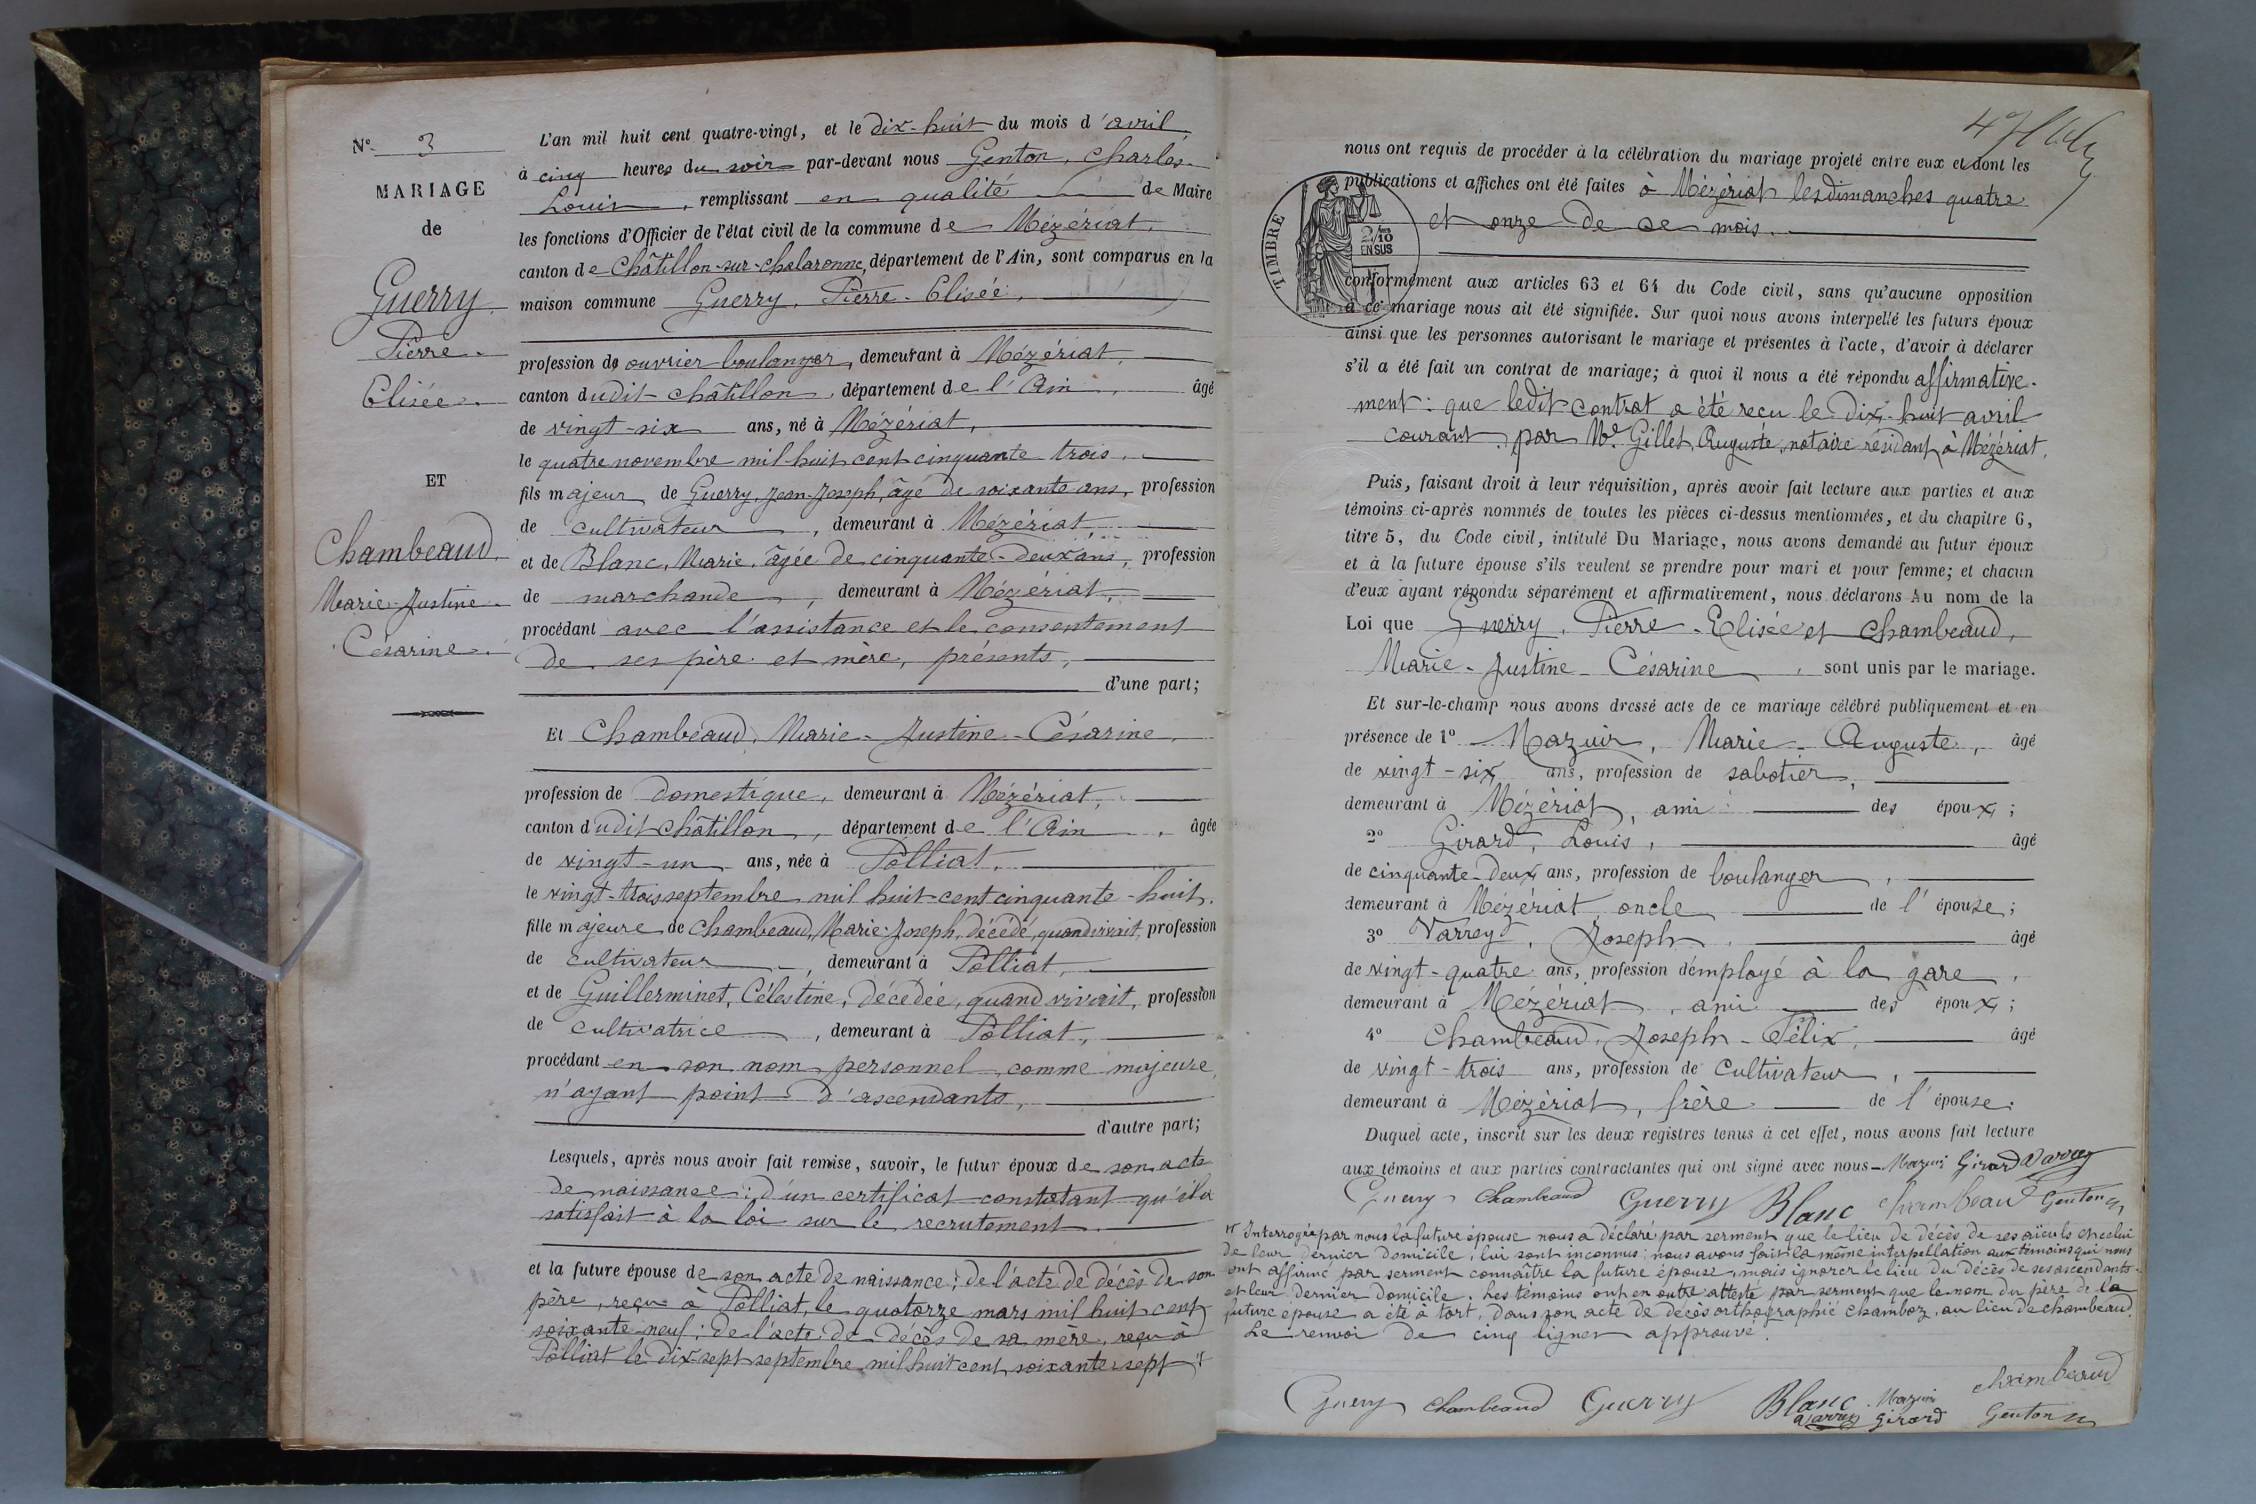 N° 3
MARIAGE
de
Guerry
Pierre
Elisée
ET
Chambeaud,
Marie-Justine
Césarine
L'an mil huit cent quatre-vingt, et le dix-huit du mois d'avril,
à cinq heures du soir par-devant nous Genton, Charles
Louis, remplissant en qualité de Maire
les fonctions d'Officier de l'état civil de la commune de Mézériat,
canton de Châtillon-sur-Chalaronne, département de l'Ain, sont comparus en la
maison commune Guerry, Pierre-Elisée,
profession de ouvrier boulanger, demeurant à Mézériat,
canton dudit Châtillon, département de l'Ain, âgé
de vingt-six ans, né à Mézériat,
le quatre novembre mil huit cent cinquante trois,
fils majeur de Guerry, Jean-Joseph, âgé de soixante ans, profession
de cultivateur, demeurant à Mézériat,
et de Blanc, Marie, âgée de cinquante-deux ans, profession
de marchande, demeurant à Mézériat,
procédant avec l'assistance et le consentement
de ses père et mère, présents,
d'une part;
Et Chambeaud, Marie-Justine-Césarine,
profession de domestique, demeurant à Mézériat,
canton dudit Châtillon, département de l'Ain, âgée
de vingt-un ans, née à Polliat,
le vingt-trois septembre mil huit cent cinquante-huit,
fille majeure de Chambeaud, Marie-Joseph, décédé, quand vivait, profession
de cultivateur, demeurant à Polliat,
et de Guillerminet, Célestine, décédée, quand vivait, profession
de cultivatrice, demeurant à Polliat,
procédant en son nom personnel, comme majeure,
n'ayant point d'ascendants,
d'autre part;
Lesquels, après nous avoir fait remise, savoir, le futur époux de son acte
de naissance; d'un certificat constatant qu'il a
satisfait à la loi sur le recrutement.
et la future épouse de son acte de naissance; de l'acte de décès de son
père, reçu à Polliat, le quatorze mars mil huit cent
soixante-neuf; de l'acte de décès de sa mère, reçu à
Polliat le dix-sept septembre mil huit cent soixante-sept
TIMBRE
2/10
EN SUS
nous ont requis de procéder à la célébration du mariage projeté entre eux et dont les
publications et affiches ont été faites à Mézériat les dimanches quatre
et onze de ce mois.
conformément aux articles 63 et 64 du Code civil, sans qu'aucune opposition
à ce mariage nous ait été signifiée. Sur quoi nous avons interpellé les futurs époux
ainsi que les personnes autorisant le mariage et présentes à l'acte, d'avoir à déclarer
s'il a été fait un contrat de mariage; à quoi il nous a été répondu affirmative-
ment: que ledit contrat a été reçu le dix-huit avril
courant, par Me Gillet, Auguste, notaire résidant à Mézériat.
Puis, faisant droit à leur réquisition, après avoir fait lecture aux parties et aux
témoins ci-après nommés de toutes les pièces ci-dessus mentionnées, et du chapitre 6,
titre 5, du Code civil, intitulé Du Mariage, nous avons demandé au futur époux
et à la future épouse s'ils veulent se prendre pour mari et pour femme; et chacun
d'eux ayant répondu séparément et affirmativement, nous déclarons Au nom de la
Loi que Guerry, Pierre-Elisée et Chambeaud,
Marie-Justine-Césarine, sont unis par le mariage.
Et sur-le-champ nous avons dressé acte de ce mariage célébré publiquement et en
présence de 1° Mazuir, Marie-Auguste, âgé
de vingt-six ans, profession de sabotier,
demeurant à Mézériat, ami des époux;
2° Girard, Louis, âgé
de cinquante-deux ans, profession de boulanger,
demeurant à Mézériat, oncle de l'épouse;
3° Varrey, Joseph, âgé
de vingt-quatre ans, profession d'employé à la gare,
demeurant à Mézériat, ami des époux;
4° Chambeaud, Joseph-Félix, âgé
de vingt-trois ans, profession de cultivateur,
demeurant à Mézériat, frère de l'épouse.
Duquel acte, inscrit sur les deux registres tenus à cet effet, nous avons fait lecture
aux témoins et aux parties contractantes qui ont signé avec nous Mazuir Girard Varrey
Guerry Chambeaud Guerry Blanc Chambeaud Genton
Interrogée par nous la future épouse nous a déclaré par serment que le lieu de décès de ses aïeuls et celui
de leur dernier domicile, lui sont inconnus; nous avons fait la même interpellation aux témoins qui nous
ont affirmé par serment connaître la future épouse, mais ignorer le lieu du décès de ses ascendants
et leur dernier domicile. Les témoins ont en outre attesté par serment que le nom du père de la
future épouse a été à tort, dans son acte de décès orthographié Chamboz, au lieu de Chambeaud.
Le renvoi de cinq lignes approuvé.
Guerry Chambeaud Guerry Blanc Mazuir Chambeaud
Varrey Girard Genton